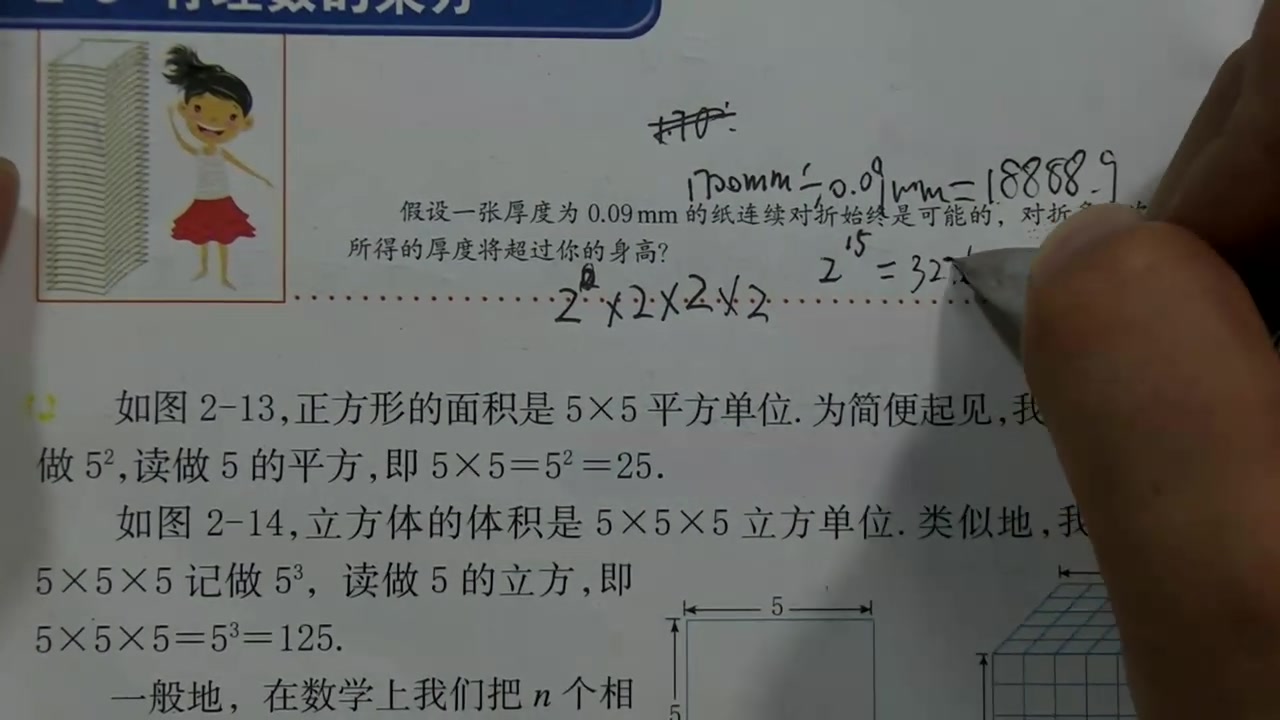 有理数的乘方
1700mm÷0.09mm=18888.9
假设一张厚度为 0.09 mm 的纸连续对折始终是可能的，对折
所得的厚度将超过你的身高?
2¹⁵=32
×2×2×2
如图 2-13,正方形的面积是 5×5 平方单位. 为简便起见,我
做 5²,读做 5 的平方,即 5×5=5²=25.
如图 2-14,立方体的体积是 5×5×5 立方单位. 类似地,我
5×5×5 记做 5³, 读做 5 的立方,即
5×5×5=5³=125.
一般地, 在数学上我们把 n 个相
5
5